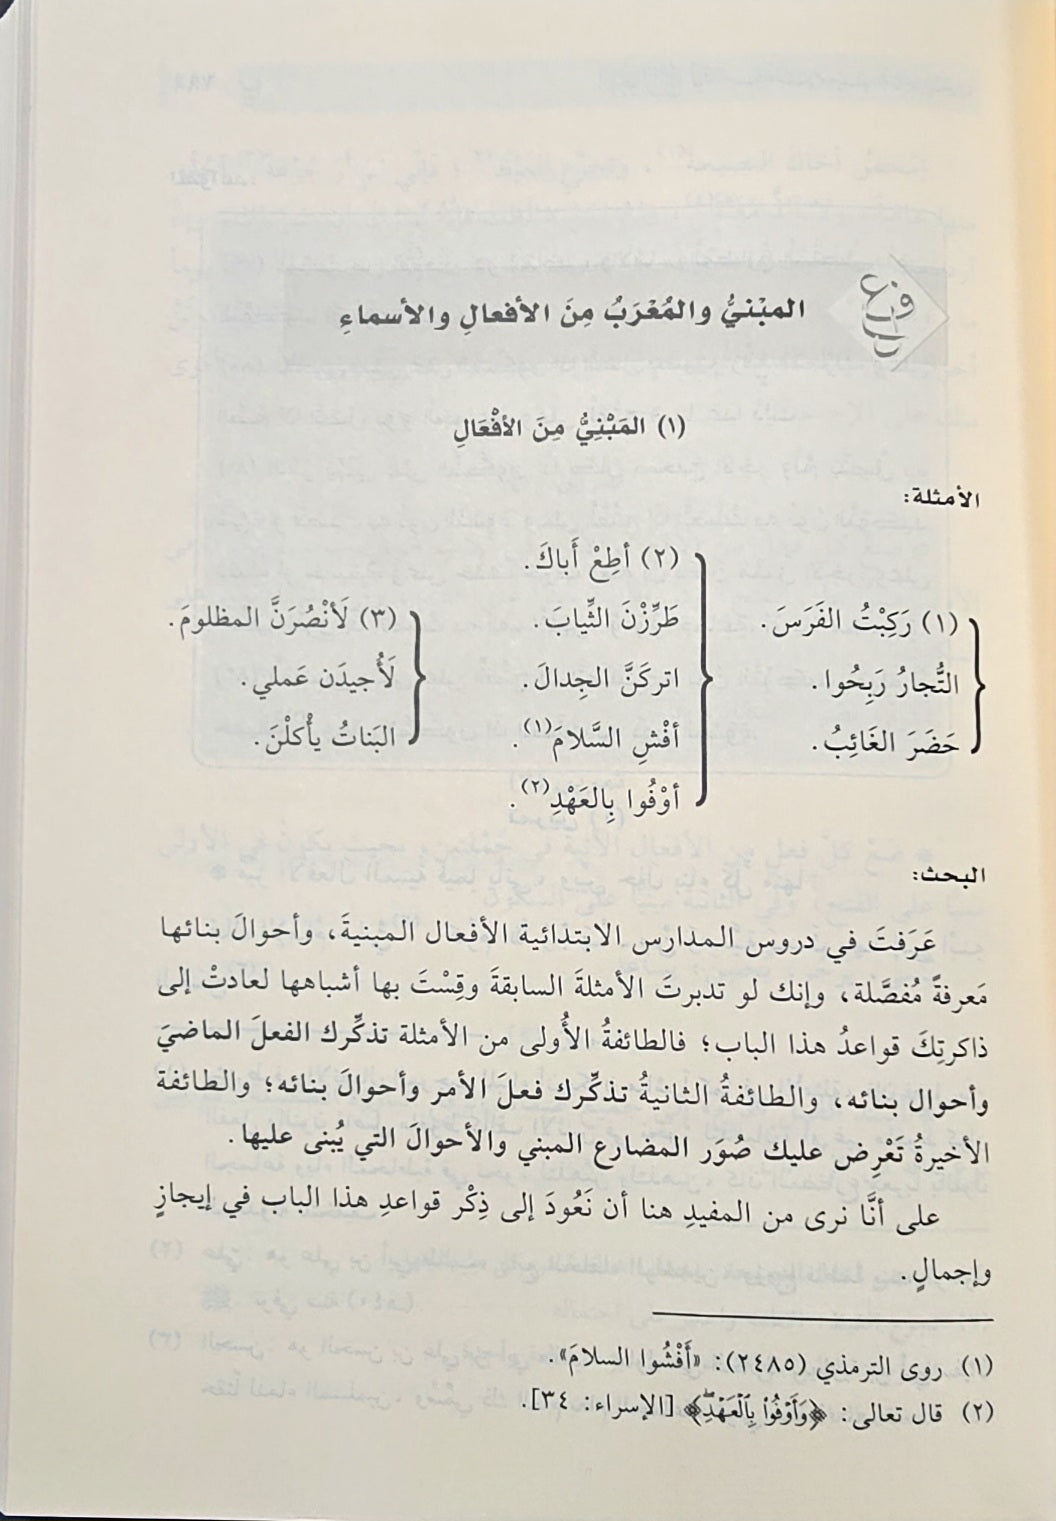 المبْنيُّ والمُعْرَبُ مِنَ الأفعالِ والأسماءِ
(١) المَبْنِيُّ مِنَ الأفْعَالِ
الأمثلة:
(١) رَكِبْتُ الفَرَسَ.
التُّجارُ رَبِحُوا.
حَضَرَ الغَائِبُ.
(٢) أطِعْ أَباكَ.
طَرِّزْنَ الثِّيابَ.
اتركَنَّ الجِدالَ.
أفْشِ السَّلامَ(١).
أوْفُوا بِالعَهْدِ(٢).
(٣) لَأنْصُرَنَّ المظلومَ.
لَأُجيدَن عَملي.
البَناتُ يأْكلْنَ.
البحث:
عَرَفتَ في دروس المدارس الابتدائية الأفعال المبنيةَ، وأحوالَ بنائها
مَعرفةً مُفصَّلة، وإنك لو تدبرتَ الأمثلةَ السابقةَ وقِسْتَ بها أشباهها لعادتْ إلى
ذاكرتِكَ قواعدُ هذا الباب؛ فالطائفةُ الأُولى من الأمثلة تذكِّرك الفعلَ الماضيَ
وأحوال بنائه، والطائفةُ الثانيةُ تذكِّرك فعلَ الأمر وأحوالَ بنائه؛ والطائفة
الأخيرةُ تَعْرِض عليك صُوَر المضارع المبني والأحوالَ التي يُبنى عليها.
على أنَّا نرى من المفيدِ هنا أن نَعُودَ إلى ذِكْر قواعدِ هذا الباب في إيجازٍ
وإجمالٍ.
(١) روى الترمذي (٢٤٨٥): «أَفْشُوا السلامَ».
(٢) قال تعالى: ﴿وَأَوْفُوا۟ بِٱلْعَهْدِۖ﴾ [الإسراء: ٣٤].